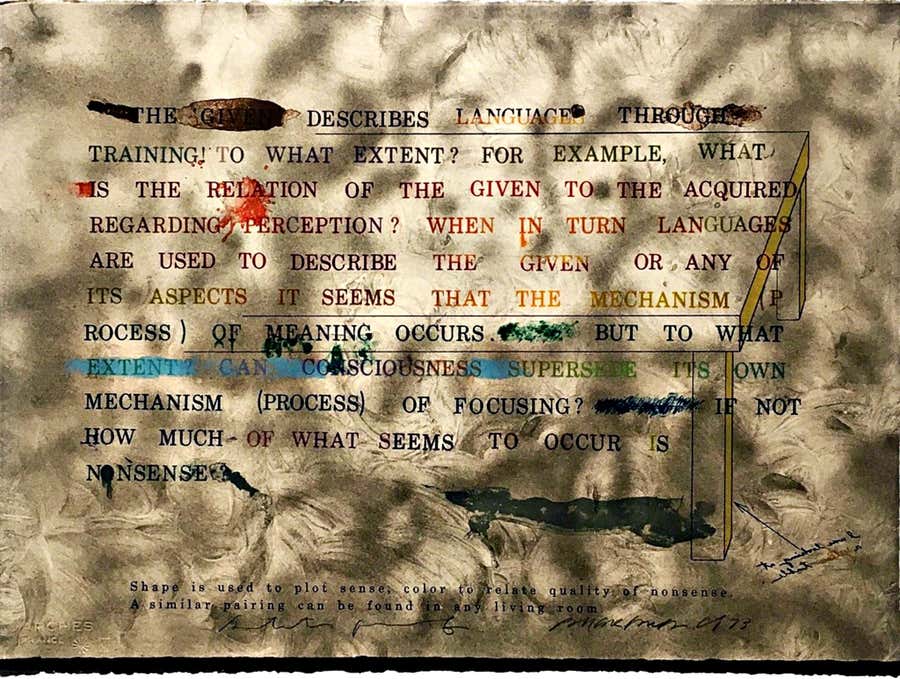 THE GIVEN DESCRIBES LANGUAGE THROUGH
TRAINING! TO WHAT EXTENT? FOR EXAMPLE, WHAT
IS THE RELATION OF THE GIVEN TO THE ACQUIRED
REGARDING PERCEPTION? WHEN IN TURN LANGUAGES
ARE USED TO DESCRIBE THE GIVEN OR ANY OF
ITS ASPECTS IT SEEMS THAT THE MECHANISM (P
ROCESS) OF MEANING OCCURS. BUT TO WHAT
EXTENT? CAN CONSCIOUSNESS SUPERSEDE ITS OWN
MECHANISM (PROCESS) OF FOCUSING? IF NOT
HOW MUCH OF WHAT SEEMS TO OCCUR IS
NONSENSE?
Shape is used to plot sense, color to relate quality of nonsense.
A similar pairing can be found in any living room
ARCHES
FRANCE
73